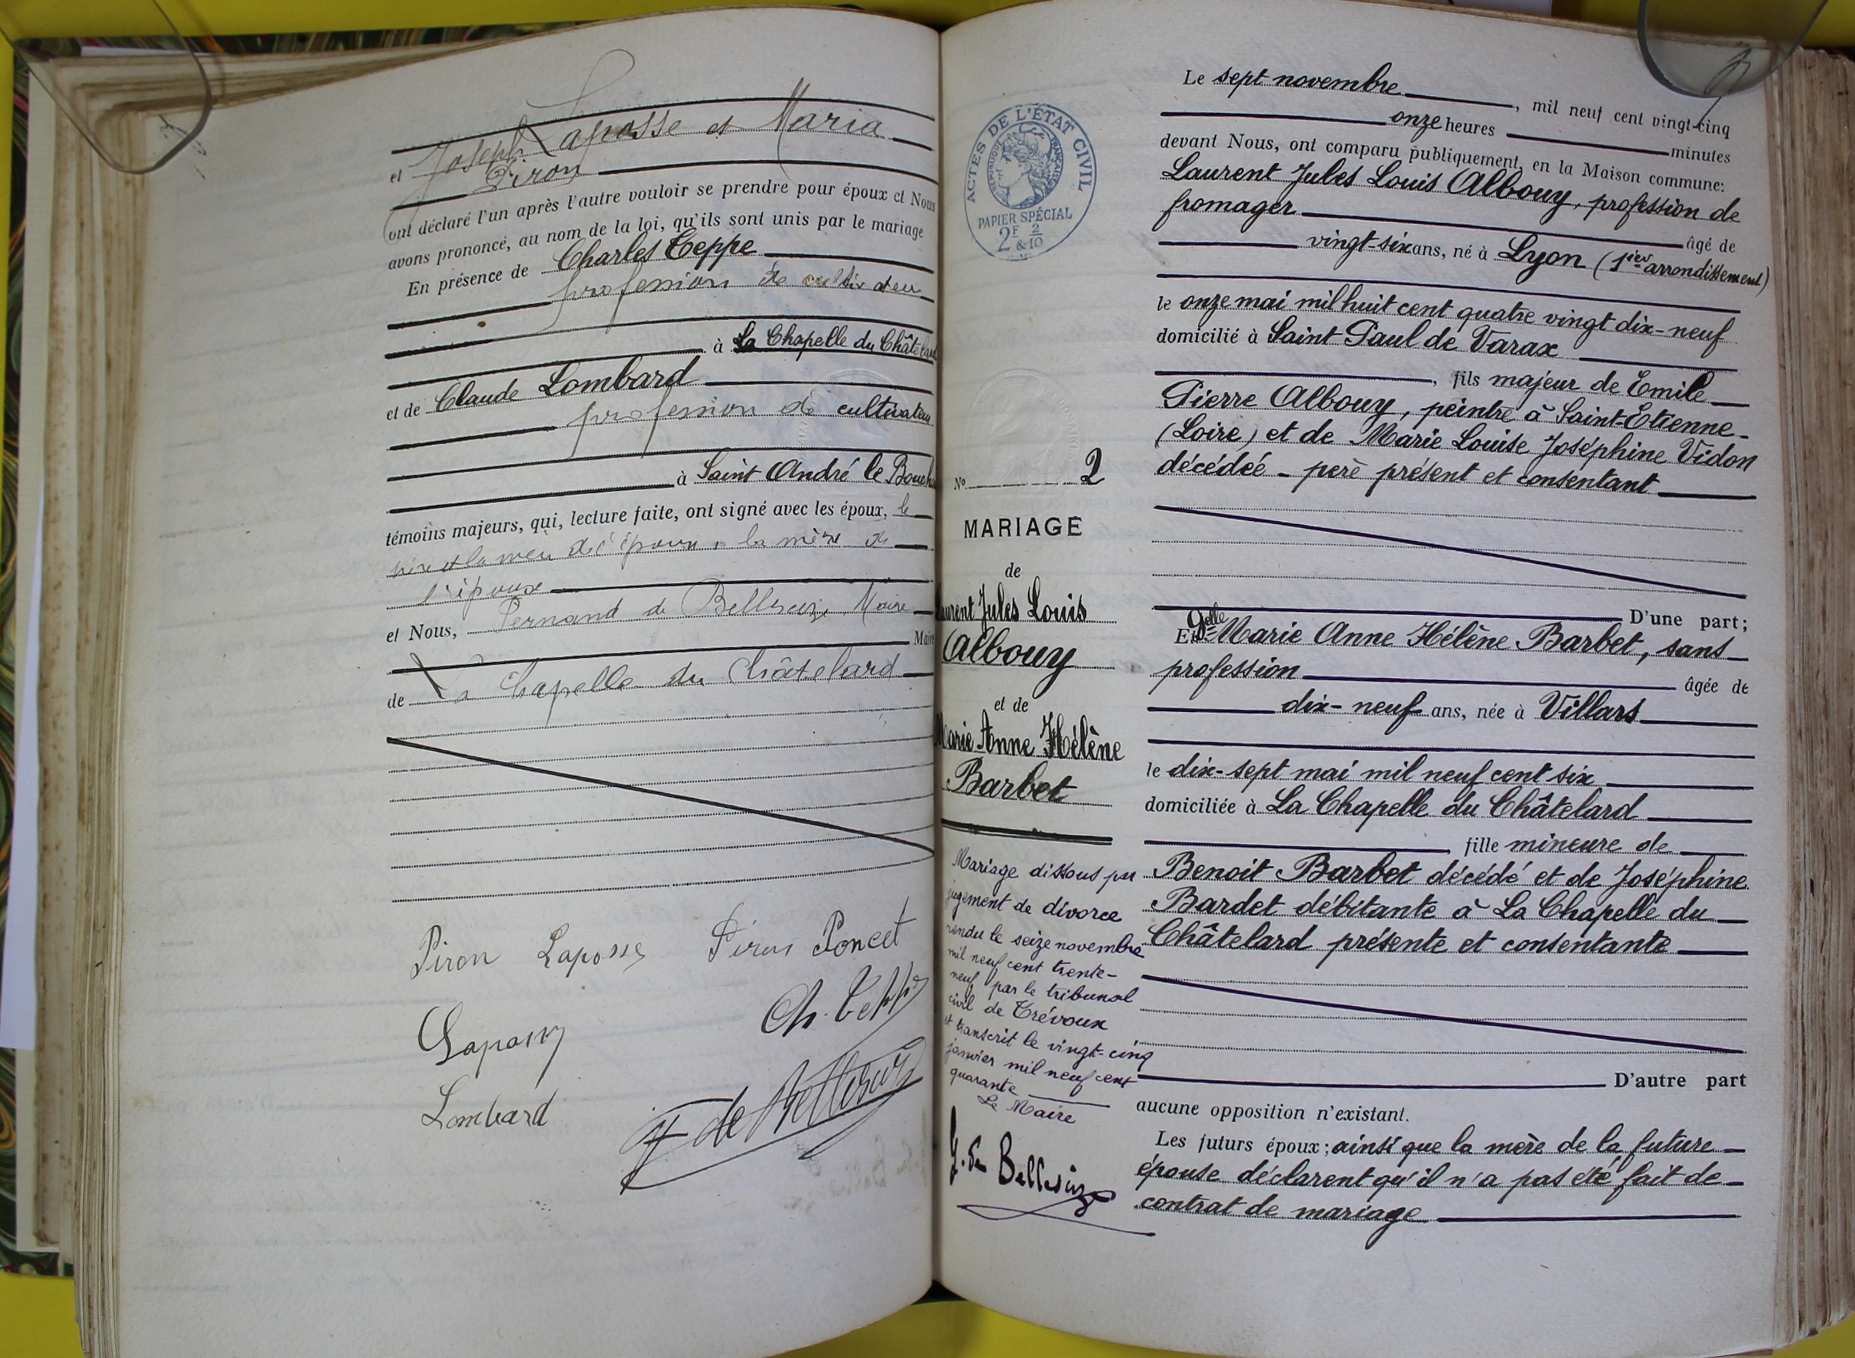 et Joseph Laposse et Maria
Piron
ont déclaré l'un après l'autre vouloir se prendre pour époux et Nous
avons prononcé, au nom de la loi, qu'ils sont unis par le mariage
En présence de Charles Teppe
profession de cultivateur
à La Chapelle du Châtelard
et de Claude Lombard
profession de cultivateur
à Saint André le Bouch
témoins majeurs, qui, lecture faite, ont signé avec les époux, le
père et la mère de l'époux, la mère de
l'épouse
et Nous, Fernand de Bellescize Maire
Maire
de La Chapelle du Châtelard
Piron Laposse Piron Poncet
Ch. Teppe
Laposse
Lombard
F de Bellescize
ACTES DE L'ÉTAT CIVIL
PAPIER SPÉCIAL
2F & 2/10
No 2
MARIAGE
de
Laurent Jules Louis
Albouy
et de
Marie Anne Hélène
Barbet
Mariage dissous par
jugement de divorce
rendu le seize novembre
mil neuf cent trente-
neuf par le tribunal
civil de Trévoux
et transcrit le vingt-cinq
janvier mil neuf cent
quarante
Le Maire
de Bellescize
Le sept novembre, mil neuf cent vingt-cinq
onze heures minutes
devant Nous, ont comparu publiquement, en la Maison commune:
Laurent Jules Louis Albouy, profession de
fromager âgé de
vingt-six ans, né à Lyon (1ier arrondissement)
le onze mai mil huit cent quatre vingt dix-neuf
domicilié à Saint Paul de Varax
, fils majeur de Emile
Pierre Albouy, peintre à Saint-Etienne
(Loire) et de Marie Louise Joséphine Vidon
décédée - père présent et consentant
D'une part;
Et Delle Marie Anne Hélène Barbet, sans
profession âgée de
dix-neuf ans, née à Villars
le dix-sept mai mil neuf cent six
domiciliée à La Chapelle du Châtelard
fille mineure de
Benoit Barbet décédé et de Joséphine
Bardet débitante à La Chapelle du
Châtelard présente et consentante
D'autre part
aucune opposition n'existant.
Les futurs époux; ainsi que la mère de la future
épouse déclarent qu'il n'a pas été fait de
contrat de mariage